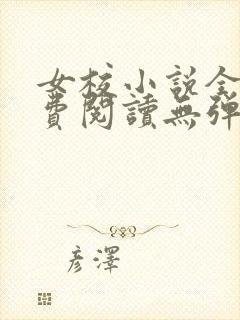 女校小说全
費閱讀無彈
彦澤